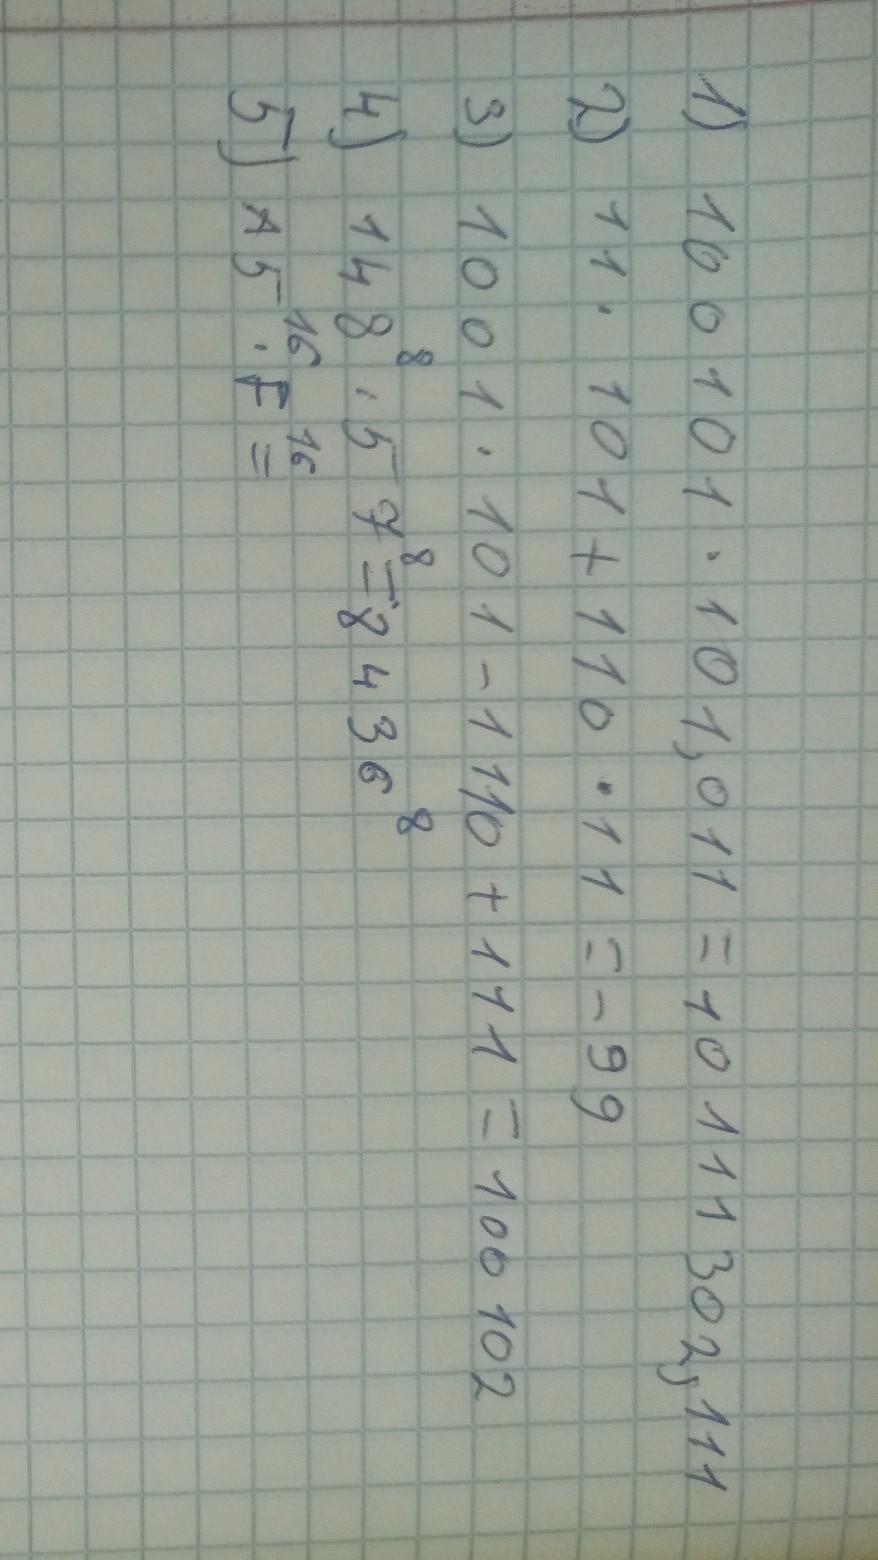 1) 100101 · 101,011 = 10111302,111
2) 11 · 101 + 110 · 11 = -99
3) 1001 · 101 - 1110 + 111 = 100102
4) 148₈ · 57₈ = 8436₈
5) A5₁₆ · F₁₆ =